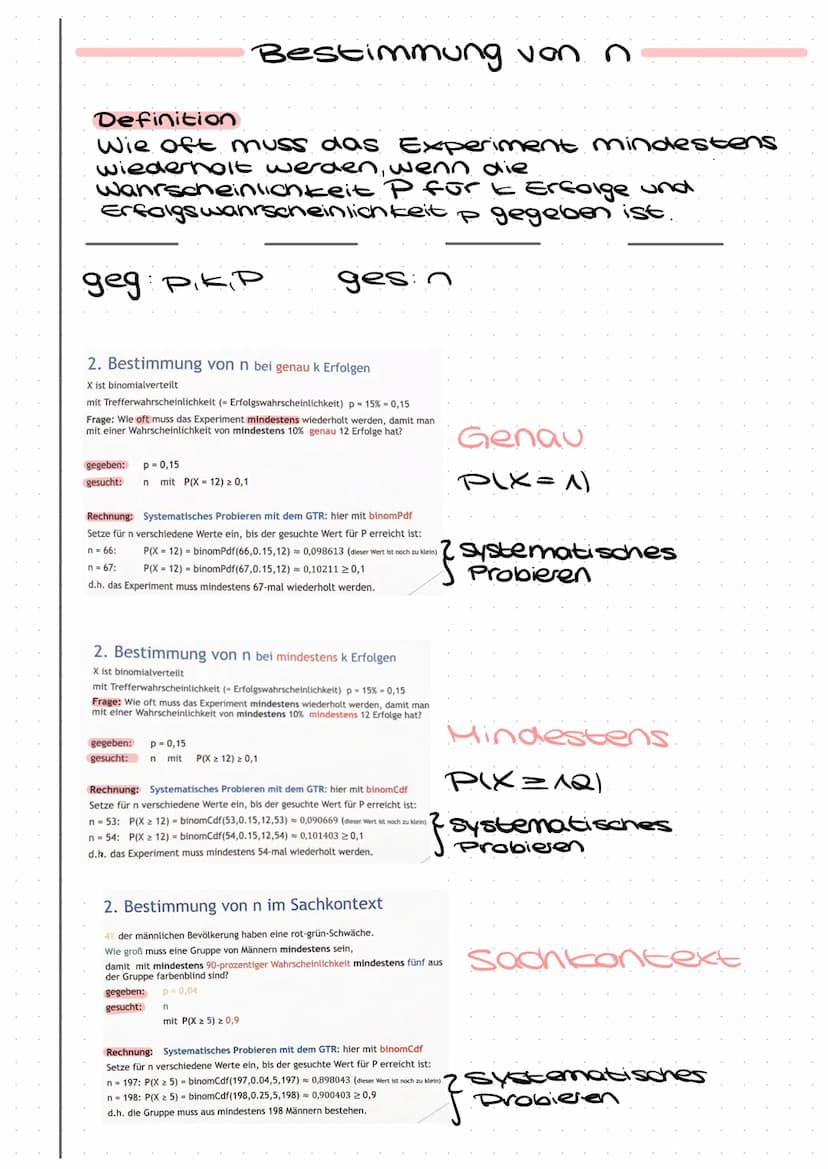 Bestimmung von n
Definition
Wie oft muss das Experiment mindestens
wiederholt werden, wenn die
Wahrscheinlichkeit P für k Erfolge und
Erfolgswahrscheinlichkeit p gegeben ist.
geg: p,k,P ges: n
2. Bestimmung von n bei genau k Erfolgen
X ist binomialverteilt
mit Trefferwahrscheinlichkeit (= Erfolgswahrscheinlichkeit) p = 15% = 0,15
Frage: Wie oft muss das Experiment mindestens wiederholt werden, damit man
mit einer Wahrscheinlichkeit von mindestens 10% genau 12 Erfolge hat?
Genau
gegeben: p = 0,15
gesucht: n mit P(X = 12) ≥ 0,1
P(X = 1)
Rechnung: Systematisches Probieren mit dem GTR: hier mit binomPdf
Setze für n verschiedene Werte ein, bis der gesuchte Wert für P erreicht ist:
n = 66: P(X = 12) = binomPdf(66,0.15,12) ≈ 0,098613 (dieser Wert ist noch zu klein)
n = 67: P(X = 12) = binomPdf(67,0.15,12) ≈ 0,10211 ≥ 0,1
d.h. das Experiment muss mindestens 67-mal wiederholt werden.
Systematisches
Probieren
2. Bestimmung von n bei mindestens k Erfolgen
X ist binomialverteilt
mit Trefferwahrscheinlichkeit (= Erfolgswahrscheinlichkeit) p = 15% = 0,15
Frage: Wie oft muss das Experiment mindestens wiederholt werden, damit man
mit einer Wahrscheinlichkeit von mindestens 10% mindestens 12 Erfolge hat?
Mindestens
gegeben: p = 0,15
gesucht: n mit P(X ≥ 12) ≥ 0,1
P(X ≥ 12)
Rechnung: Systematisches Probieren mit dem GTR: hier mit binomCdf
Setze für n verschiedene Werte ein, bis der gesuchte Wert für P erreicht ist:
n = 53: P(X ≥ 12) = binomCdf(53,0.15,12,53) ≈ 0,090669 (dieser Wert ist noch zu klein)
n = 54: P(X ≥ 12) = binomCdf(54,0.15,12,54) ≈ 0,101403 ≥ 0,1
d.h. das Experiment muss mindestens 54-mal wiederholt werden.
Systematisches
Probieren
2. Bestimmung von n im Sachkontext
4% der männlichen Bevölkerung haben eine rot-grün-Schwäche.
Wie groß muss eine Gruppe von Männern mindestens sein,
damit mit mindestens 90-prozentiger Wahrscheinlichkeit mindestens fünf aus
der Gruppe farbenblind sind?
Sachkontext
gegeben: p = 0,04
gesucht: n
mit P(X ≥ 5) ≥ 0,9
Rechnung: Systematisches Probieren mit dem GTR: hier mit binomCdf
Setze für n verschiedene Werte ein, bis der gesuchte Wert für P erreicht ist:
n = 197: P(X ≥ 5) = binomCdf(197,0.04,5,197) ≈ 0,898043 (dieser Wert ist noch zu klein)
n = 198: P(X ≥ 5) = binomCdf(198,0.25,5,198) ≈ 0,900403 ≥ 0,9
d.h. die Gruppe muss aus mindestens 198 Männern bestehen.
Systematisches
Probieren